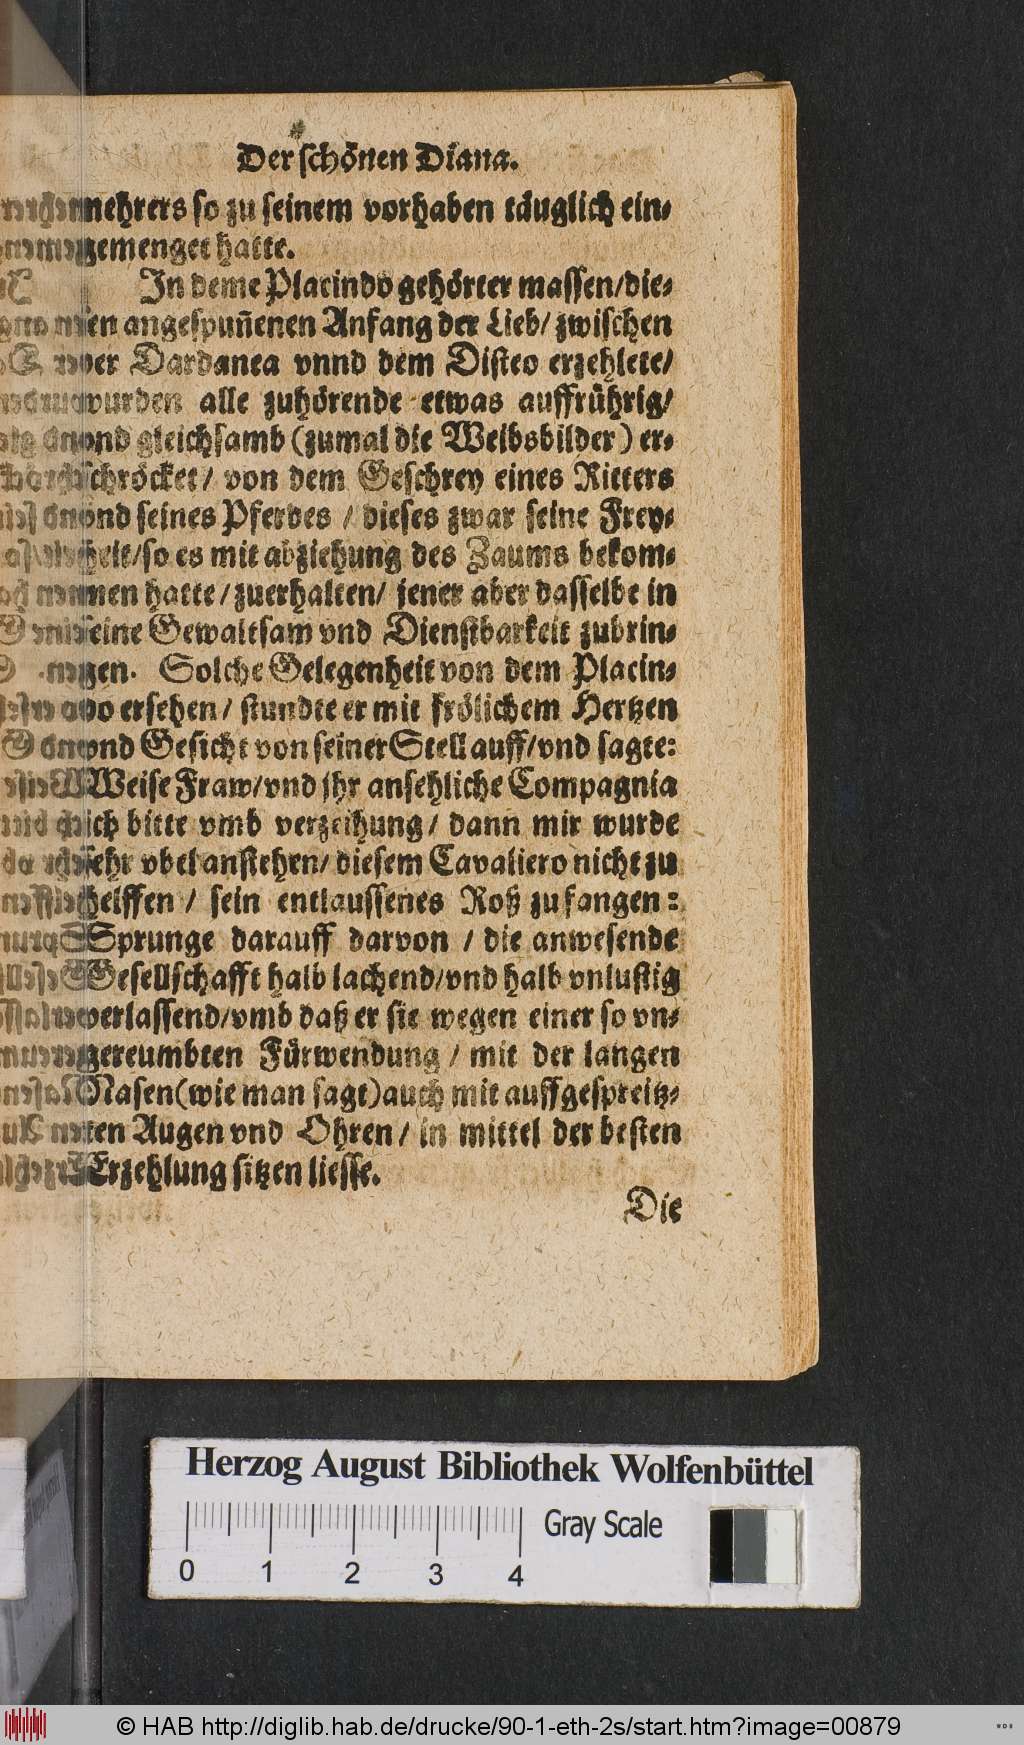 Der schönen Diana.
mehrers so zu seinem vorhaben täuglich ein⸗
gemenget hatte.
In deme Placindo gehörter massen/die⸗
sen angespuñenen Anfang der Lieb/ zwischen
der Dardanea vnnd dem Disteo erzehlete/
wurden alle zuhörende etwas auffrührig/
vnd gleichsamb (zumal die Weibsbilder) er⸗
schröcket/ von dem Geschrey eines Ritters
vnd seines Pferdes / dieses zwar seine Frey⸗
heit/so es mit abziehung des Zaums bekom⸗
men hatte/zuerhalten/ jener aber dasselbe in
seine Gewaltsam vnd Dienstbarkeit zubrin⸗
gen. Solche Gelegenheit von dem Placin⸗
do ersehen/ stundte er mit frölichem Hertzen
vnd Gesicht von seiner Stell auff/vnd sagte:
Weise Fraw/vnd jhr ansehliche Compagnia
ich bitte vmb verzeihung/ dann mir wurde
sehr vbel anstehen/ diesem Cavaliero nicht zu
helffen / sein entlauffenes Roß zufangen:
Sprunge darauff darvon / die anwesende
Gesellschafft halb lachend/vnd halb vnlustig
verlassend/vmb daß er sie wegen einer so vn⸗
gereumbten Fürwendung / mit der langen
Nasen(wie man sagt)auch mit auffgespreitz⸗
ten Augen vnd Ohren/ in mittel der besten
Erzehlung sitzen liesse.
Die
Herzog August Bibliothek Wolfenbüttel
0 1 2 3 4
Gray Scale
© HAB http://diglib.hab.de/drucke/90-1-eth-2s/start.htm?image=00879